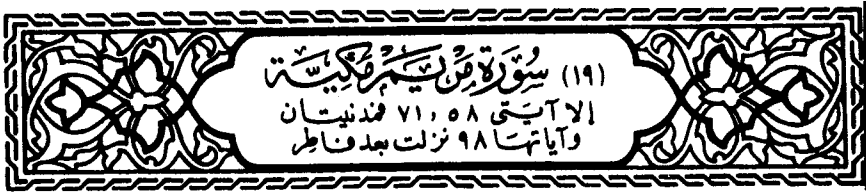 (١٩) سُورَةِ مَرْيَمَ مَكِّيَّة
إلا آيتى ٥٨ ، ٧١ فمدنيتان
وآياتها ٩٨ نزلت بعد فاطر